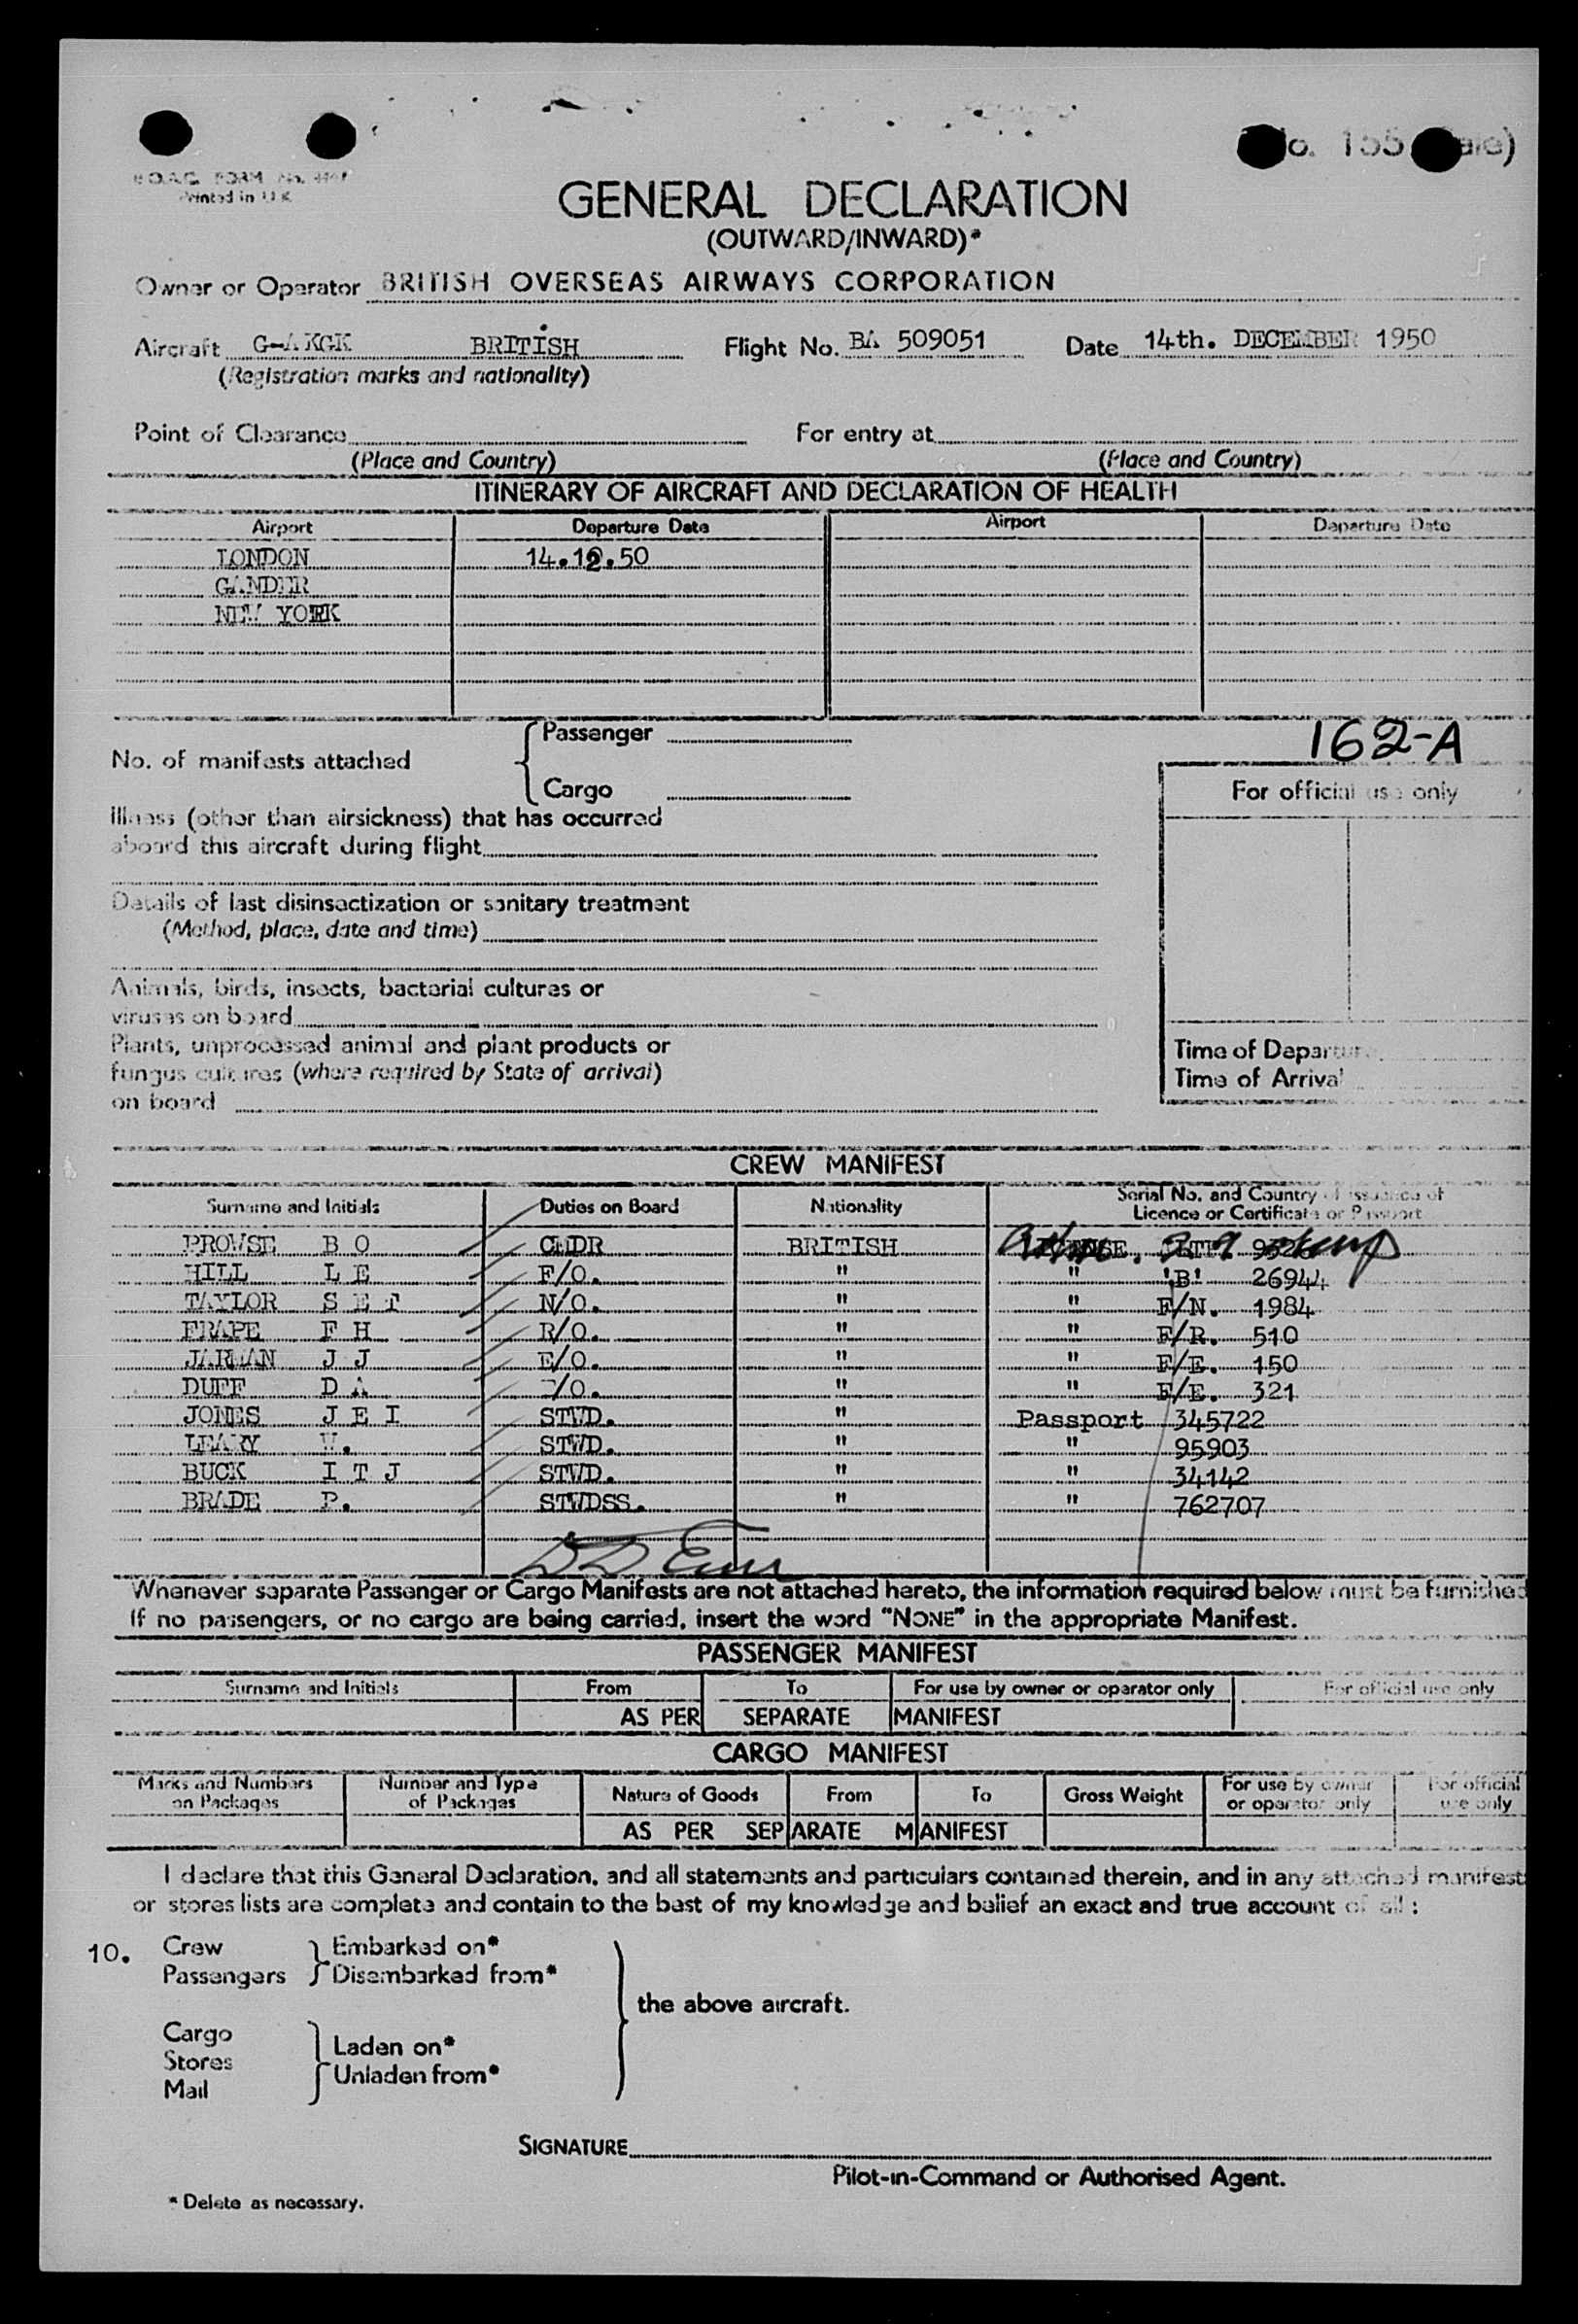 B.O.A.C. FORM No.
Printed in U.K.
GENERAL DECLARATION
(OUTWARD/INWARD)*
Owner or Operator BRITISH OVERSEAS AIRWAYS CORPORATION
Aircraft G-AKGK BRITISH Flight No. BA 509051 Date 14th. DECEMBER 1950
(Registration marks and nationality)
Point of Clearance For entry at
(Place and Country) (Place and Country)
ITINERARY OF AIRCRAFT AND DECLARATION OF HEALTH
Airport Departure Date Airport Departure Date
LONDON 14.12.50
GANDER
NEW YORK
162-A
No. of manifests attached { Passenger
Cargo
For official use only
Illness (other than airsickness) that has occurred
aboard this aircraft during flight
Details of last disinsectization or sanitary treatment
(Method, place, date and time)
Animals, birds, insects, bacterial cultures or
viruses on board
Plants, unprocessed animal and plant products or
fungus cultures (where required by State of arrival)
on board
Time of Departure
Time of Arrival
CREW MANIFEST
Surname and Initials Duties on Board Nationality Serial No. and Country of issuance of
Licence or Certificate or Passport
PROWSE B O CMDR BRITISH
HILL L E F/O. " " 'B' 26944
TAYLOR S E T N/O. " " F/N. 1984
FRAPE F H R/O. " " F/R. 510
JARMAN J J E/O. " " F/E. 150
DUFF D A /O. " " F/E. 321
JONES J E I STWD. " Passport 345722
LEARY W. STWD. " " 95903
BUCK I T J STWD. " " 34142
BRADE P. STWDSS. " " 762707
Whenever separate Passenger or Cargo Manifests are not attached hereto, the information required below must be furnished
If no passengers, or no cargo are being carried, insert the word "NONE" in the appropriate Manifest.
PASSENGER MANIFEST
Surname and Initials From To For use by owner or operator only For official use only
AS PER SEPARATE MANIFEST
CARGO MANIFEST
Marks and Numbers on Packages Number and Type of Packages Nature of Goods From To Gross Weight For use by owner or operator only For official use only
AS PER SEPARATE MANIFEST
I declare that this General Declaration, and all statements and particulars contained therein, and in any attached manifest
or stores lists are complete and contain to the best of my knowledge and belief an exact and true account of all :
10. Crew } Embarked on*
Passengers } Disembarked from*
the above aircraft.
Cargo
Stores } Laden on*
Mail } Unladen from*
SIGNATURE
Pilot-in-Command or Authorised Agent.
* Delete as necessary.